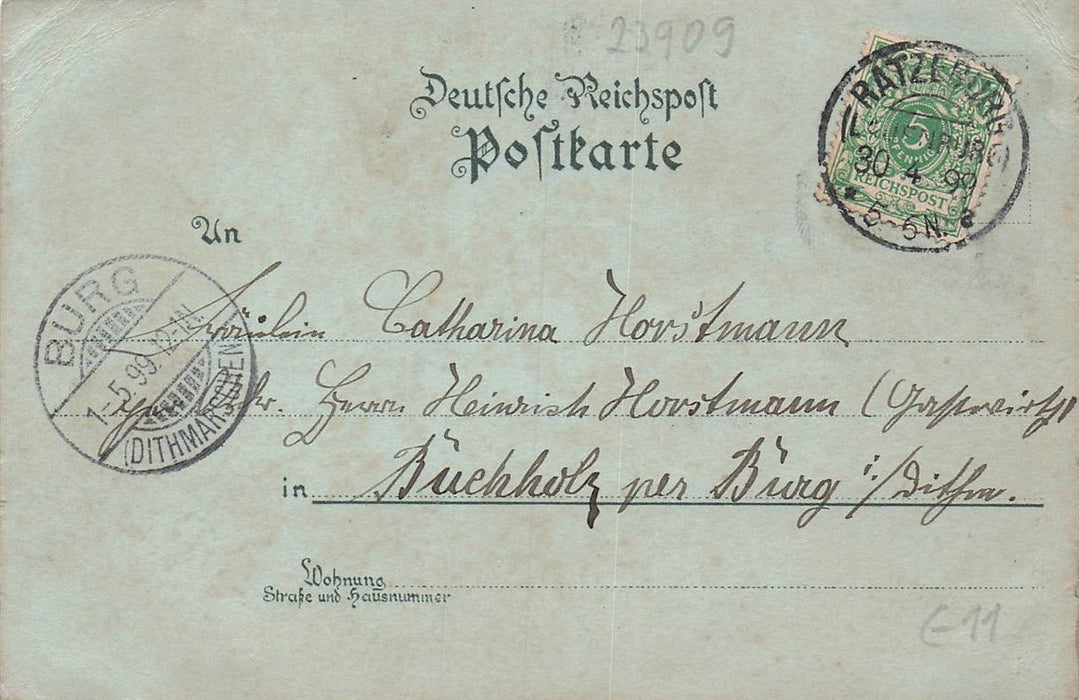 23909
Deutsche Reichspost
Postkarte
RATZEBURG
(LAUENBURG)
30 4 99
5-6N.
5
PFENNIG
REICHSPOST
An
BURG
1-5.99.12-1N.
(DITHMARSCHEN)
Fräulein Catharina Horstmann
Herrn Heinrich Horstmann (Gastwirth)
in Buchholz per Burg i/Dithm.
Wohnung
Straße und Hausnummer
E 11